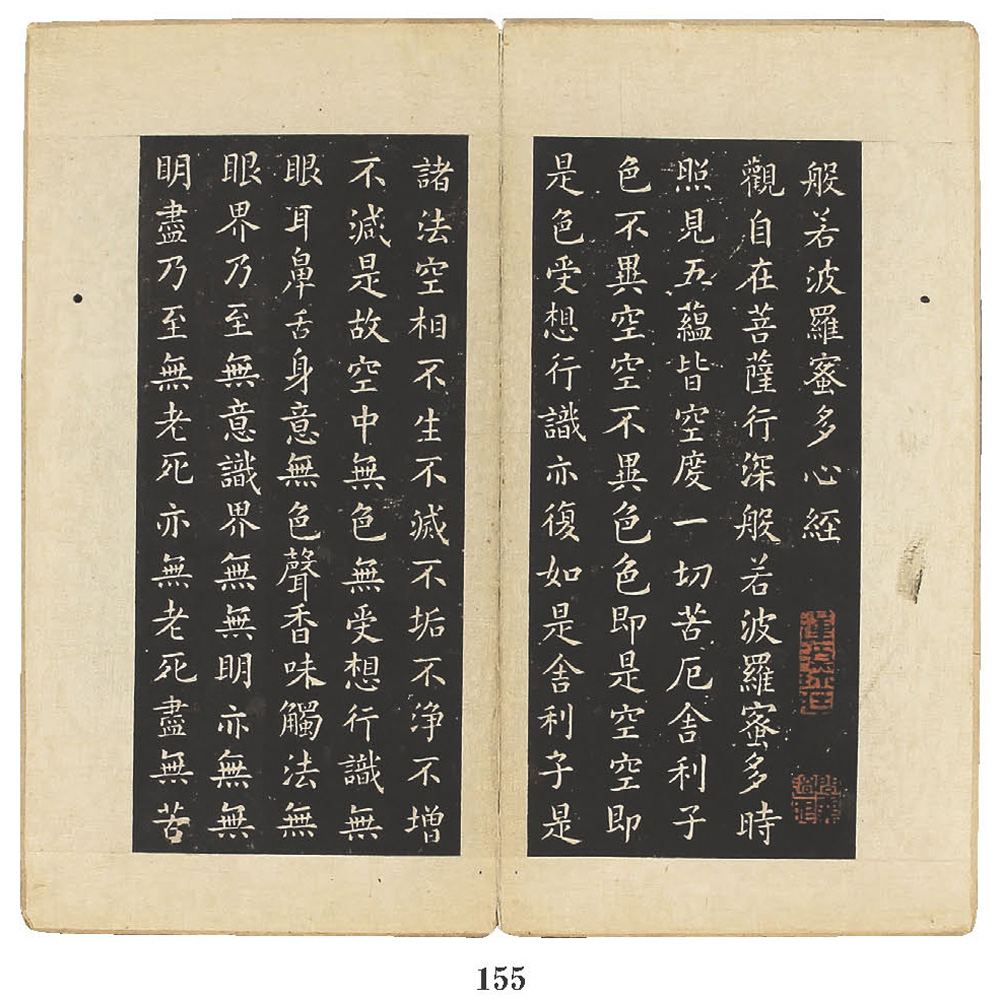 般若波羅蜜多心經
觀自在菩薩行深般若波羅蜜多時
照見五蘊皆空度一切苦厄舍利子
色不異空空不異色色即是空空即
是色受想行識亦復如是舍利子是
諸法空相不生不滅不垢不淨不增
不減是故空中無色無受想行識無
眼耳鼻舌身意無色聲香味觸法無
眼界乃至無意識界無無明亦無無
明盡乃至無老死亦無老死盡無苦
155